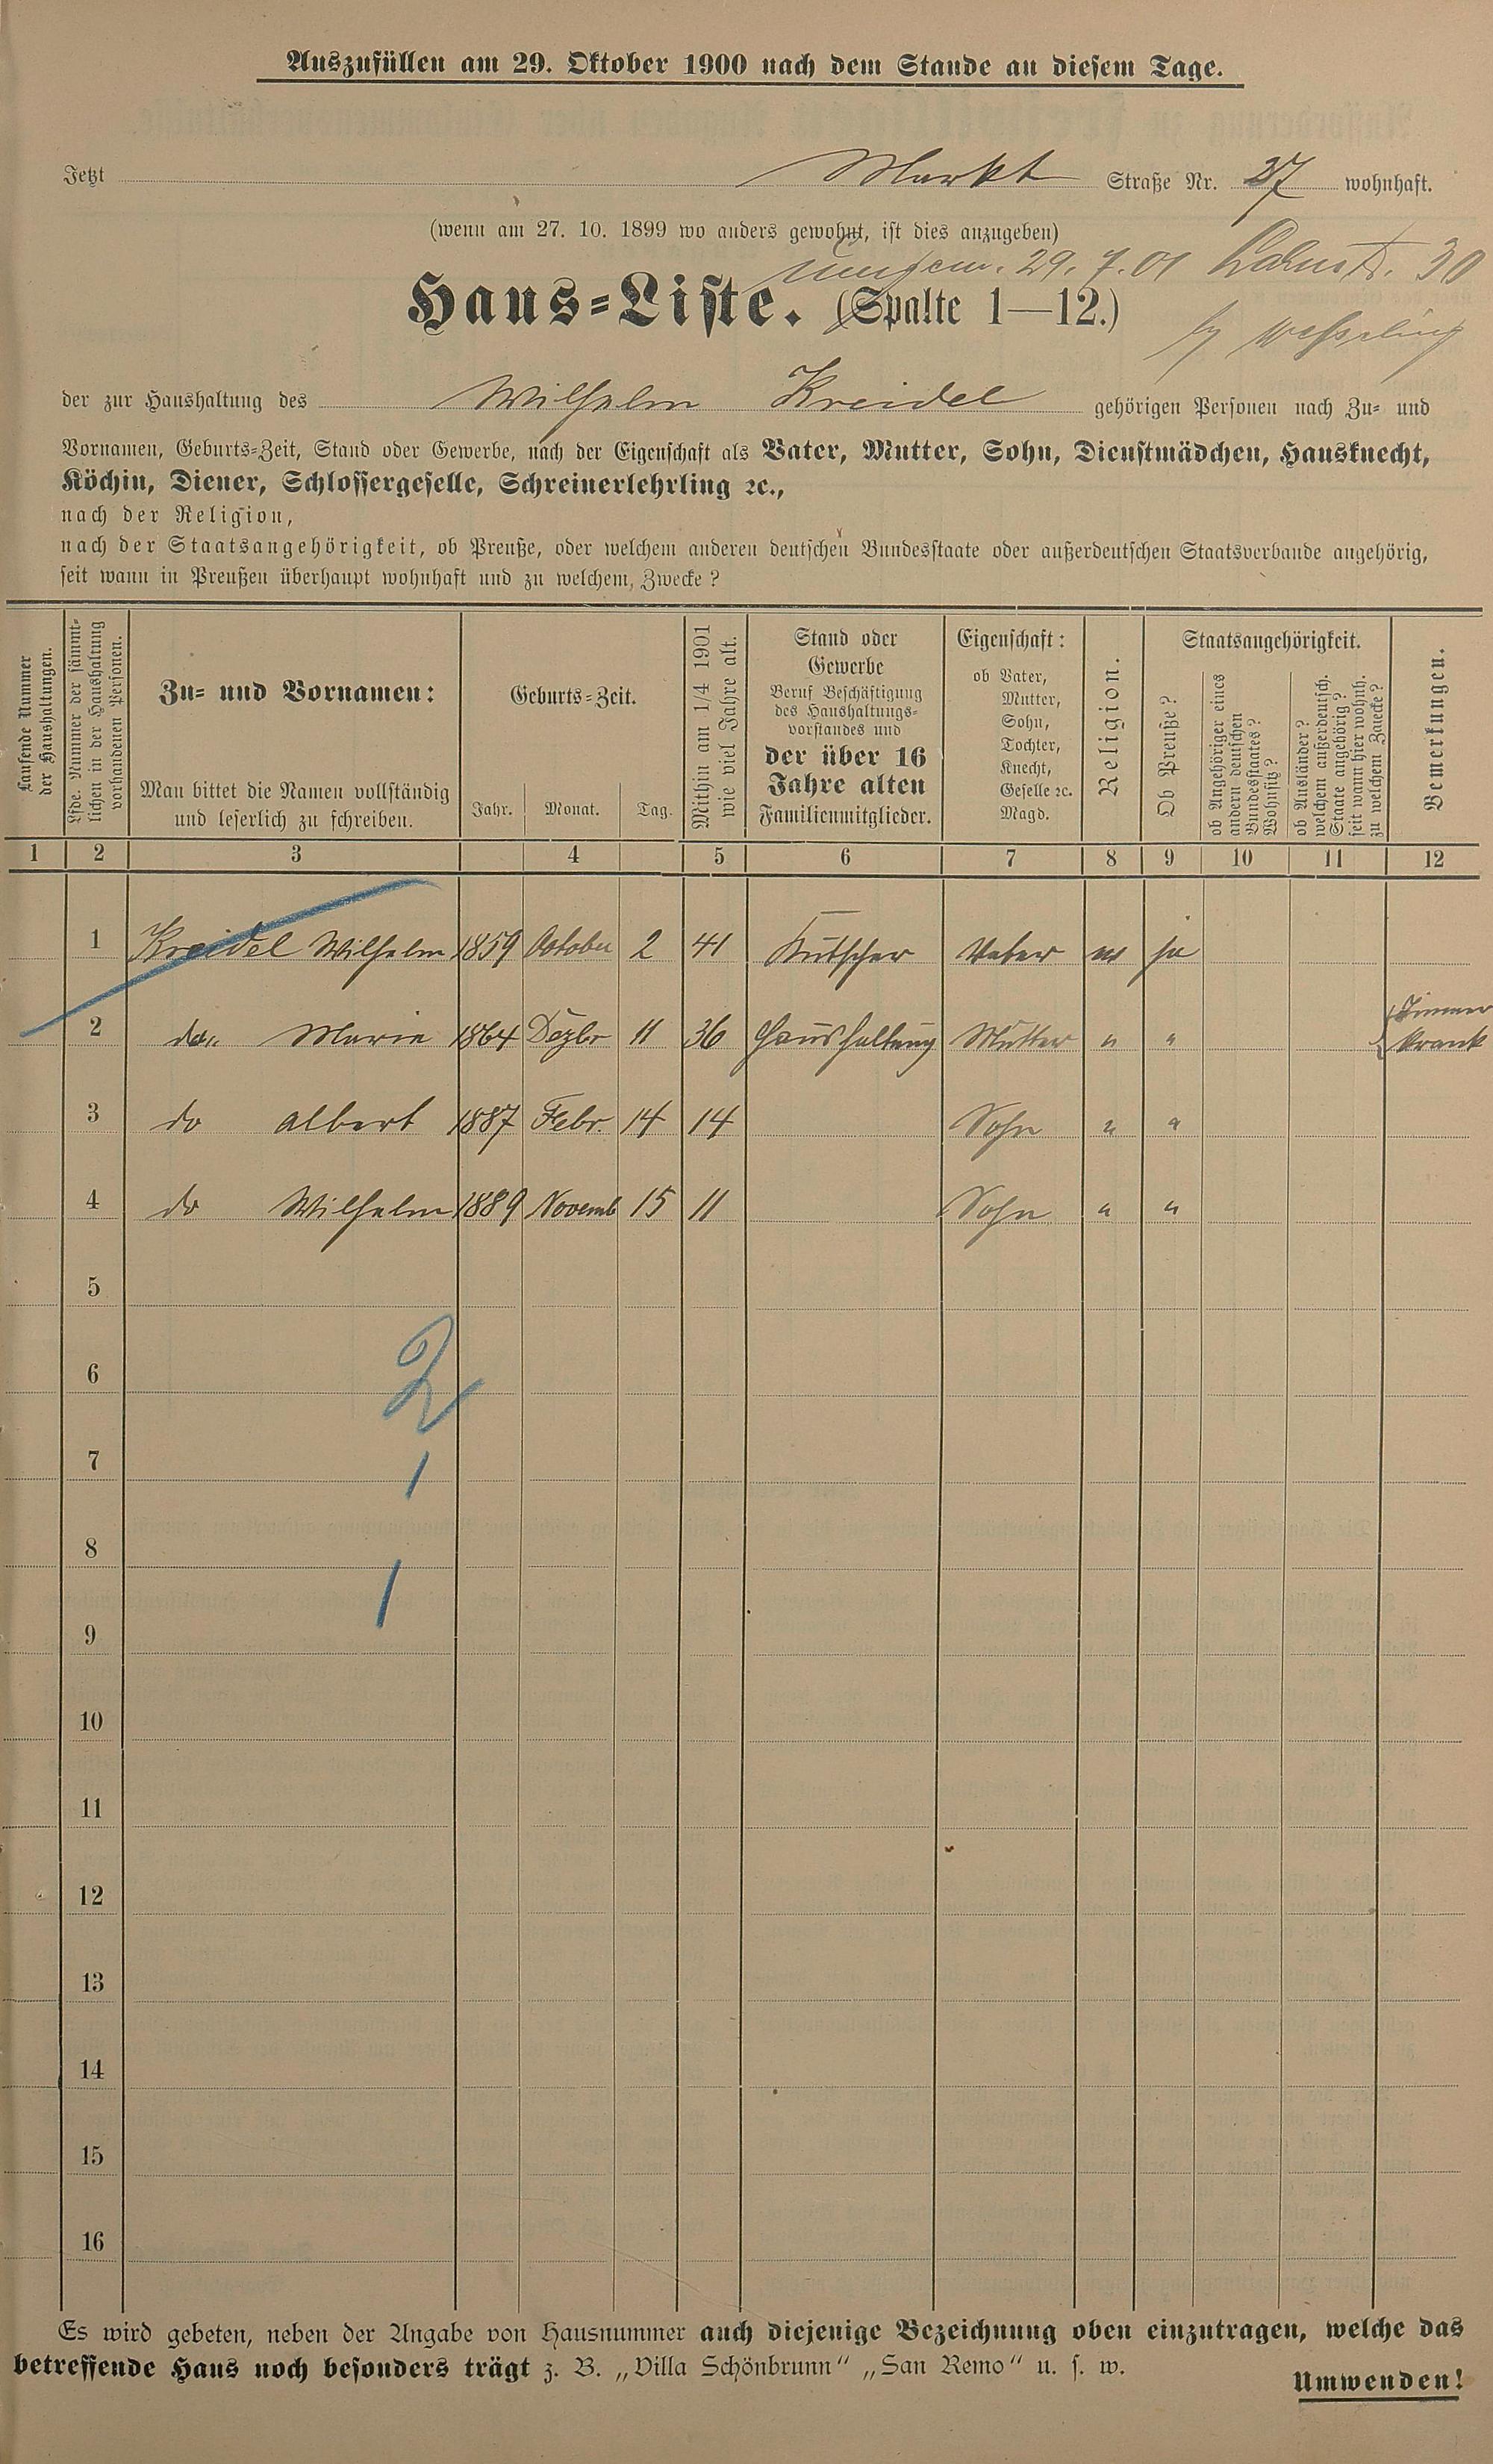 Auszufüllen am 29. Oktober 1900 nach dem Stande an diesem Tage.
Jetzt Markt Straße Nr. 27 wohnhaft.
(wenn am 27. 10. 1899 wo anders gewohnt, ist dies anzugeben)
29. 7. 01 30
Haus-Liste. (Spalte 1—12.)
der zur Haushaltung des Wilhelm Kreidel gehörigen Personen nach Zu- und
Vornamen, Geburts-Zeit, Stand oder Gewerbe, nach der Eigenschaft als Vater, Mutter, Sohn, Dienstmädchen, Hausknecht,
Köchin, Diener, Schlossergeselle, Schreinerlehrling ꝛc.,
nach der Religion,
nach der Staatsangehörigkeit, ob Preuße, oder welchem anderen deutschen Bundesstaate oder außerdeutschen Staatsverbande angehörig,
seit wann in Preußen überhaupt wohnhaft und zu welchem Zwecke?
Laufende Nummer
der Haushaltungen.
Lfde. Nummer der sämmt-
lichen in der Haushaltung
vorhandenen Personen.
Zu- und Vornamen:
Man bittet die Namen vollständig
und leserlich zu schreiben.
Geburts-Zeit.
Jahr. Monat. Tag.
Mithin am 1/4 1901
wie viel Jahre alt.
Stand oder
Gewerbe
Beruf Beschäftigung
des Haushaltungs-
vorstandes und
der über 16
Jahre alten
Familienmitglieder.
Eigenschaft:
ob Vater,
Mutter,
Sohn,
Tochter,
Knecht,
Geselle ꝛc.
Magd.
Religion.
Staatsangehörigkeit.
Ob Preuße?
ob Angehöriger eines
andern deutschen
Bundesstaates?
Wohnsitz?
ob Ausländer?
welchem außerdeutsch.
Staate angehörig?
seit wann hier wohnh.
zu welchem Zwecke?
Bemerkungen.
1 2 3 4 5 6 7 8 9 10 11 12
1 Kreidel Wilhelm 1859 October 2 41 Kutscher Vater ja
2 do. Marie 1864 Dezbr 11 36 Haushaltung Mutter " " Immer
krank
3 do Albert 1887 Febr. 14 14 Sohn " "
4 do Wilhelm 1889 Novemb 15 11 Sohn " "
5
6
2
7
1
8
1
9
10
11
12
13
14
15
16
Es wird gebeten, neben der Angabe von Hausnummer auch diejenige Bezeichnung oben einzutragen, welche das
betreffende Haus noch besonders trägt z. B. „Villa Schönbrunn“ „San Remo“ u. s. w.
Umwenden!